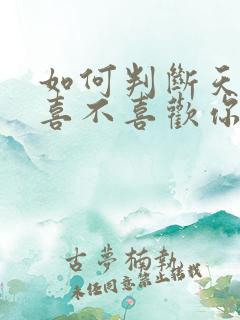 如何判斷天
喜不喜歡你
古夢楠執
未经同意禁止转载